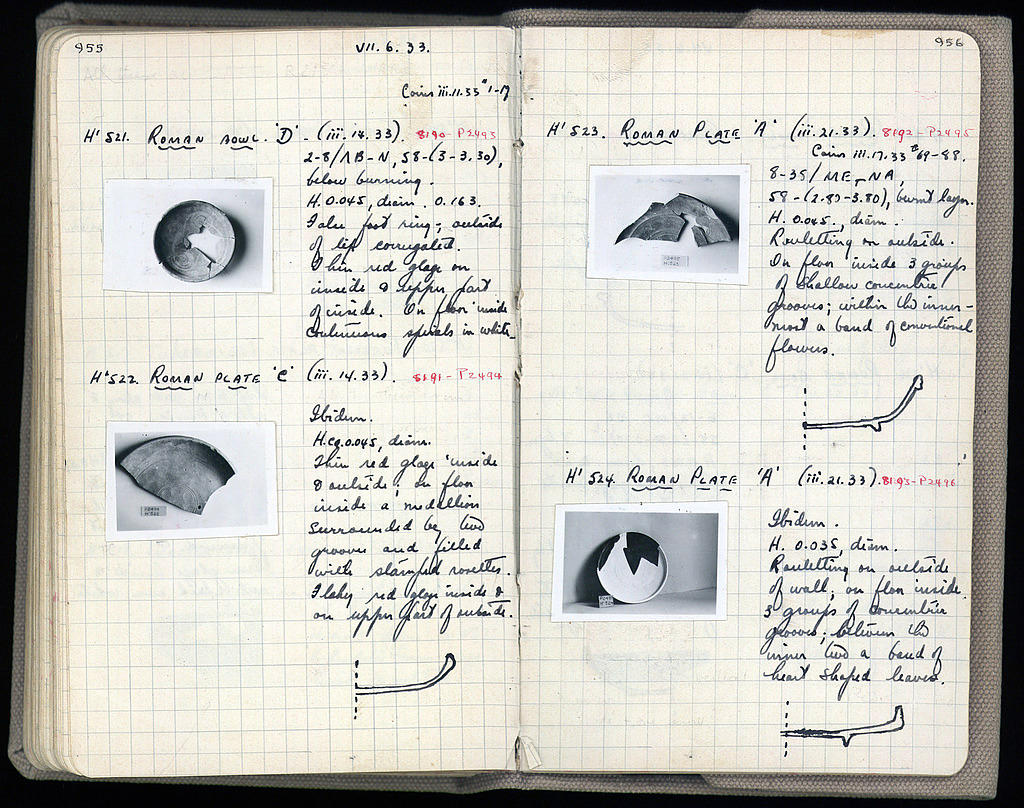 955
VII. 6. 33.
Coins iii.11.33 #1-17
H' 521. ROMAN BOWL. 'D' - (iii. 14. 33). 8190 - P2493
2-8/ΛB-N, 58-(3-3.30),
below burning.
H. 0.045, diam. 0.163.
False foot ring; outside
of lip corrugated.
Thin red glaze on
inside & upper part
of inside. On floor inside
continuous spirals in white
H' 522. ROMAN PLATE 'C' (iii. 14. 33). 8191 - P2494
Ibidem.
H. ca. 0.045, diam.
Thin red glaze inside
& outside; on floor
inside a medallion
surrounded by two
grooves and filled
with stamped rosettes.
Flaky red glaze inside &
on upper part of outside.
956
H' 523. ROMAN PLATE 'A' (iii. 21. 33). 8192 - P2495
Coins iii.17.33 #69-88.
8-35/ME-NA,
58-(2.80-3.80), burnt layer.
H. 0.045, diam.
Rouletting on outside.
On floor inside 3 groups
of shallow concentric
grooves; within the inner-
most a band of conventional
flowers.
H' 524. ROMAN PLATE 'A' (iii. 21. 33). 8193 - P2496
Ibidem.
H. 0.035, diam.
Rouletting on outside
of wall; on floor inside
3 groups of concentric
grooves; between the
inner two a band of
heart shaped leaves.